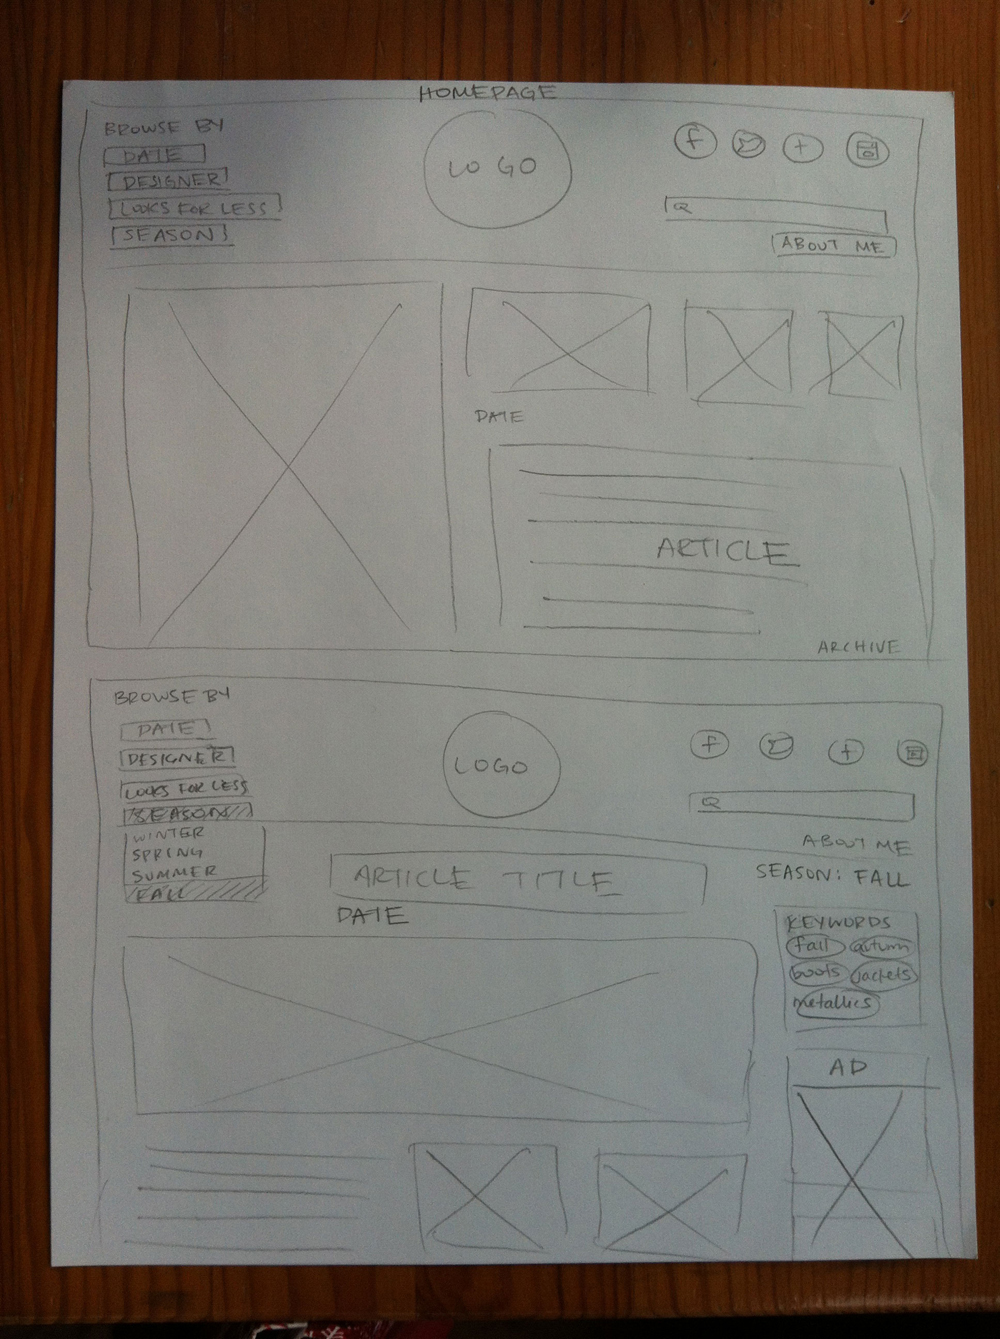 HOMEPAGE
BROWSE BY
DATE
DESIGNER
LOOKS FOR LESS
SEASON
LOGO
f
ABOUT ME
DATE
ARTICLE
ARCHIVE
BROWSE BY
DATE
DESIGNER
LOOKS FOR LESS
SEASON
WINTER
SPRING
SUMMER
FALL
LOGO
f
ABOUT ME
ARTICLE TITLE
DATE
SEASON: FALL
KEYWORDS
fall autumn
boots jackets
metallics
AD